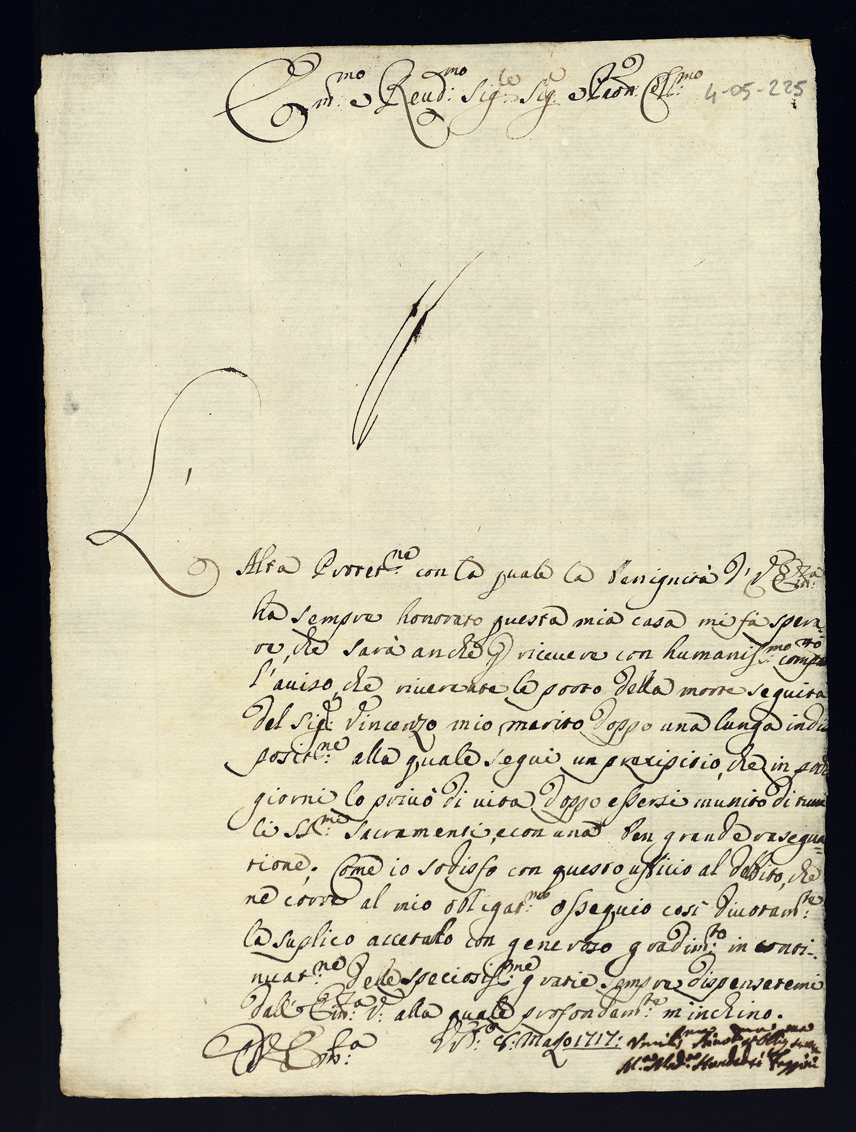 Em:mo e Reud:mo Sig:re Sig:e e Pron Col:mo
4-05-225
L'
Alta Protet:ne con la quale la Benignità d' V. Em:za
ha sempre honorato questa mia casa mi fà spera-
re, che sarà anche p ricevere con humanis:mo comp:to
l'aviso, che riverente le porto della morte seguita
del Sig:e Vincenzo mio marito doppo una lunga indi
posit:ne alla quale seguì un precipitio, che in pochi
giorni lo privò di vita doppo essersi munito di tutti
li SS:mi Sacramenti, e con una ben grande rasegna-
tione. Come io sodisfo con questo ufficio al debito, che
ne corre al mio obligat:mo ossequio così divotam:te
la suplico accetarlo con generoso gradim:to in conti-
nuat:ne delle speciosis:me gratie sempre dispensatemi
dall' Em:za V: alla quale profondam:te m'inchino.
Mago 1717: